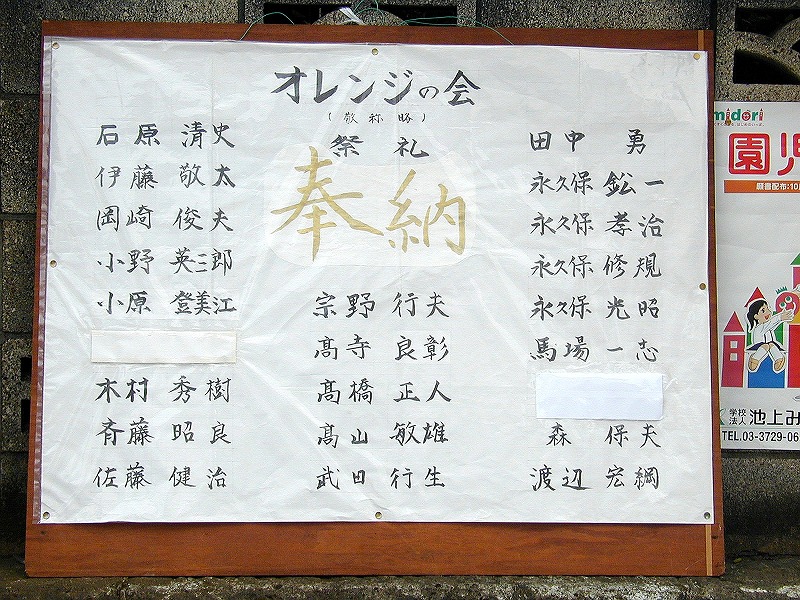 オレンジの会
(敬称略)
祭礼
奉納
石原 清史
伊藤 敬太
岡崎 俊夫
小野 英三郎
小原 登美江
木村 秀樹
斉藤 昭良
佐藤 健治
宗野 行夫
髙寺 良彰
髙橋 正人
髙山 敏雄
武田 行生
田中 勇
永久保 鈆一
永久保 孝治
永久保 修規
永久保 光昭
馬場 一志
森 保夫
渡辺 宏綱
midori
園児
願書配布:10
学校法人 池上み
TEL.03-3729-06